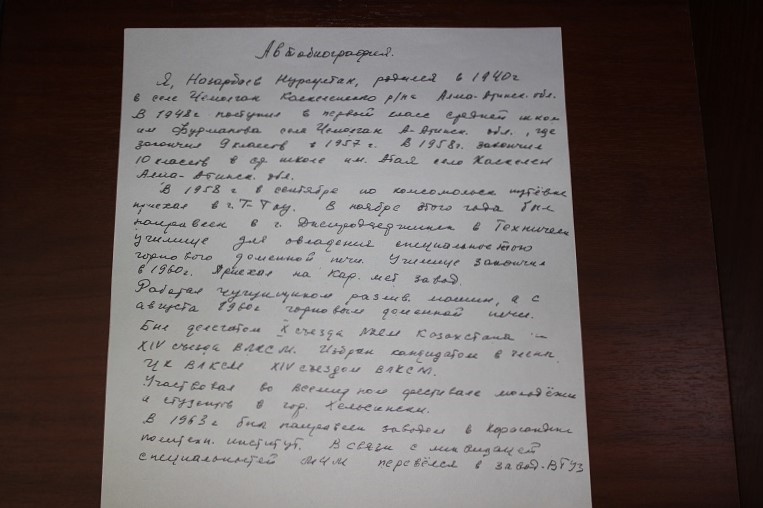 Автобиография.
Я, Назарбаев Нурсултан, родился в 1940г
в селе Чемолган Каскеленского р/на Алма-Атинск. обл.
В 1948г поступил в первый класс средней школы
им Фурманова села Чемолган А-Атинск. обл., где
закончил 9 классов в 1957г. В 1958г. закончил
10 классов в ср школе им. Абая село Каскелен
Алма-Атинск. обл.
В 1958г в сентябре по комсомольск путёвке
приехал в г. Т-Тау. В ноябре этого года был
направлен в г. Днепродзержинск в Техническ
училище для овладения специальностью
горнового доменной печи. Училище закончил
в 1960г. Приехал на Кар. мет завод.
Работал чугунщиком разлив. машин, а с
августа 1960г горновым доменной печи.
Был делегатом X съезда ЛКСМ Казахстана и
XIV съезда ВЛКСМ. Избран кандидатом в члены
ЦК ВЛКСМ XIV съездом ВЛКСМ.
Участвовал во Всемирном фестивале молодёжи
и студентов в гор. Хельсинки.
В 1963г был направлен заводом в Карагандинс
политехн. институт. В связи с ликвидацией
специальностей МЧМ перевёлся в завод-ВТУЗ